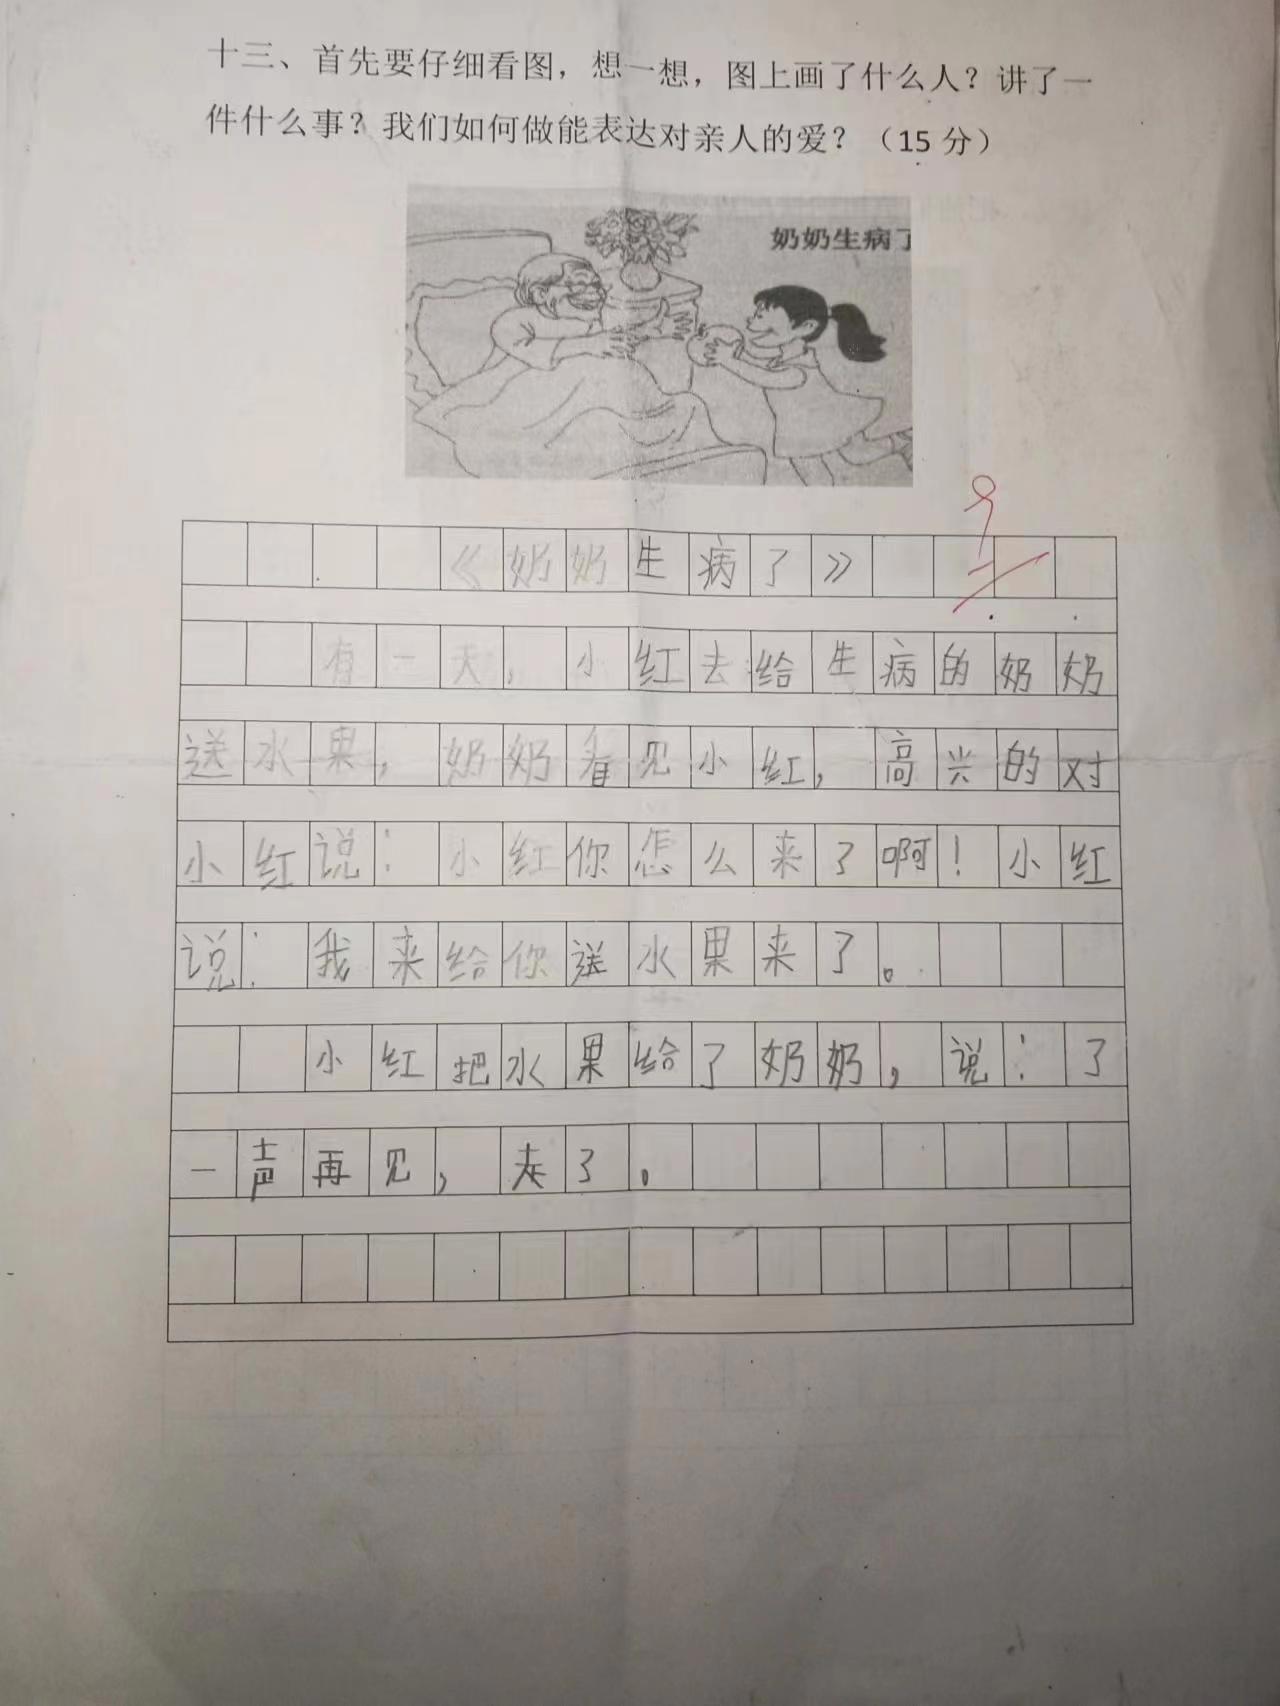 十三、首先要仔细看图，想一想，图上画了什么人？讲了一
件什么事？我们如何做能表达对亲人的爱？（15 分）
奶奶生病了
《奶奶生病了》
有一天，小红去给生病的奶奶
送水果，奶奶看见小红，高兴的对
小红说：小红你怎么来了啊！小红
说：我来给你送水果来了。
小红把水果给了奶奶，说：了
一声再见，走了。